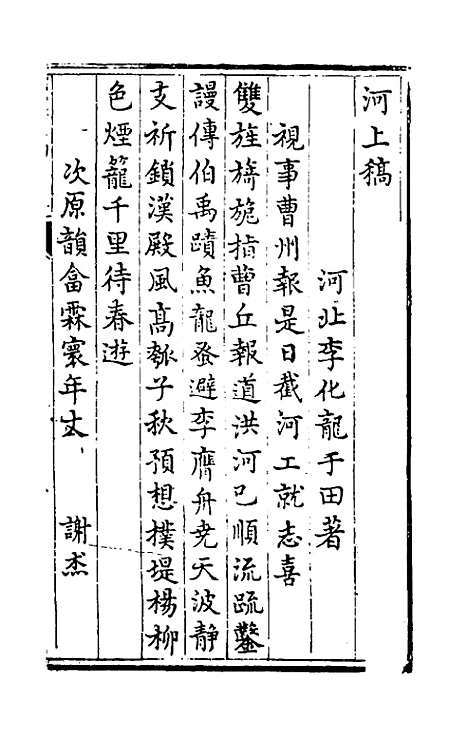 河上稿
河北李化龍于田著
視事曹州報是日截河工就志喜
雙旌旖旎指曹丘報道洪河已順流疏鑿
謾傳伯禹蹟魚龍發避李膺舟堯天波靜
支祈鎖漢殿風高瓠子秋預想撲堤楊柳
色煙籠千里待春遊
次原韻畣霖寰年丈
謝杰